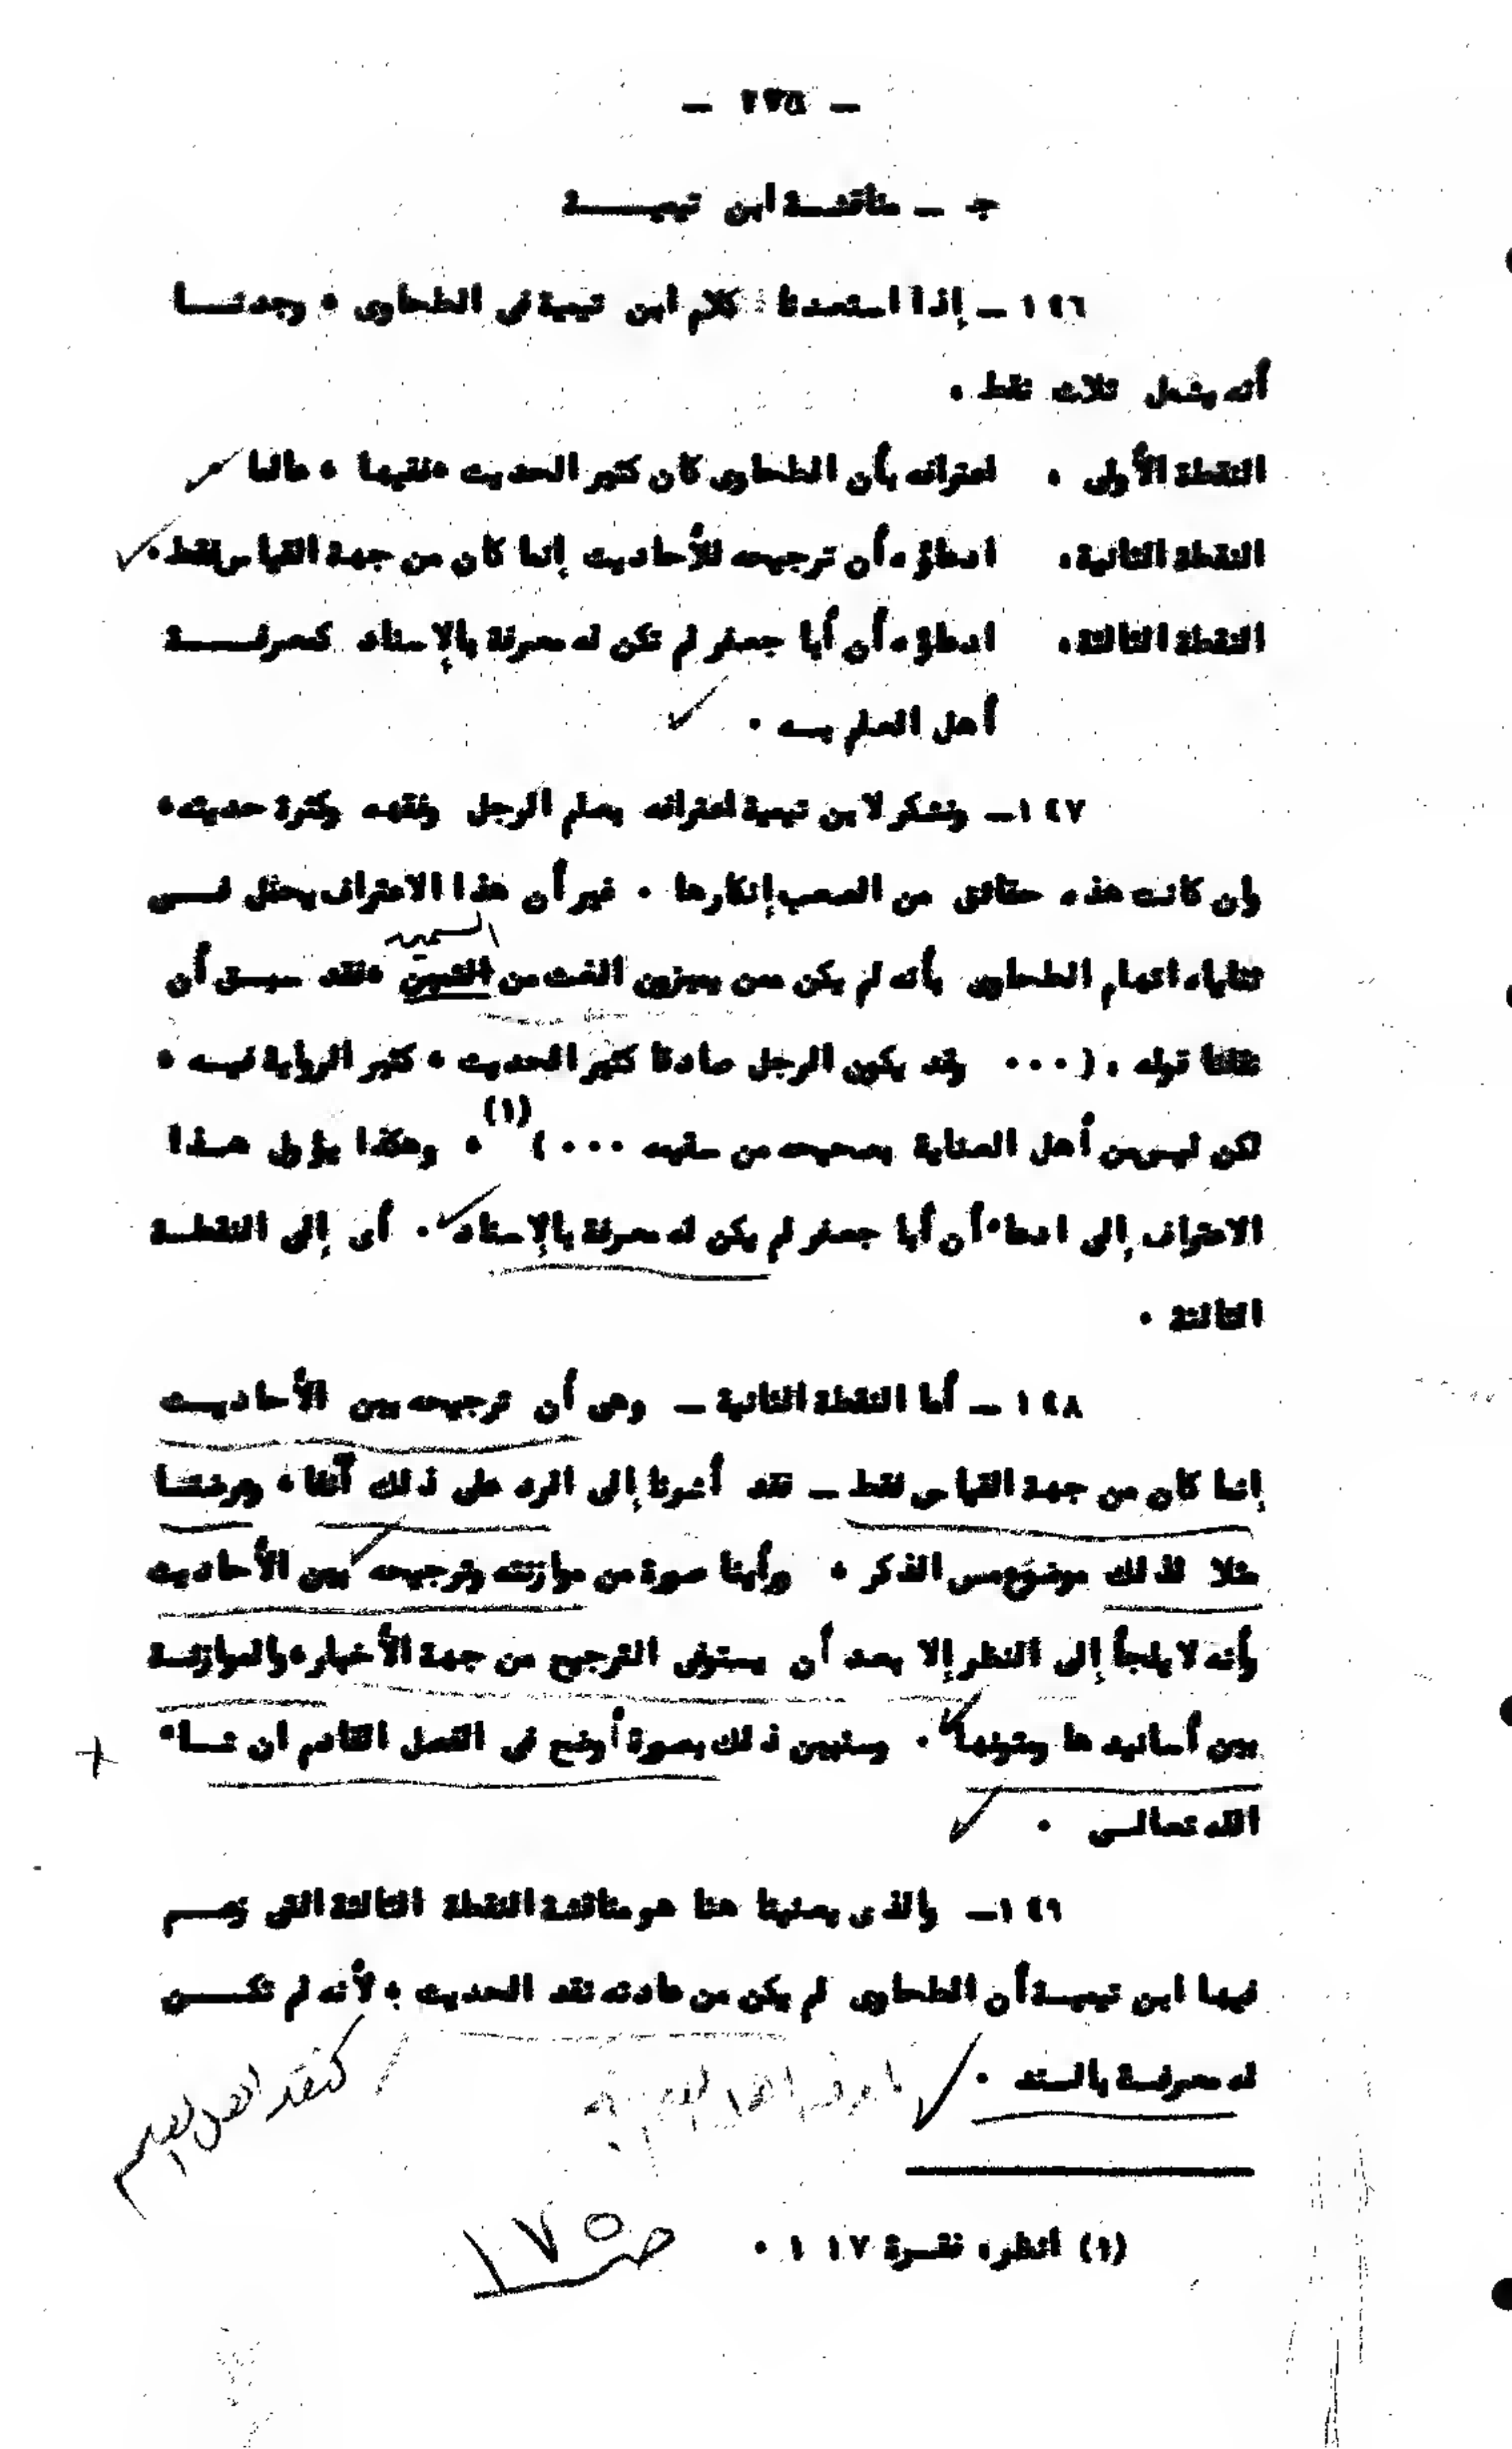 — ٢٧٥ —
جـ ـ مناقشـة ابن تيميـــــة
١٤٦ ـ إذا استعدنا كلام ابن تيمية في الطحاوى ٠ وجدنـــا
أنه يشمل ثلاث نقط ٠
النقطة الأولى ٠ اعترافه بأن الطحاوى كان كثير الحديث ٠فقيها ٠ عالما
النقطة الثانية٠ ادعاؤه أن ترجيحه للأحاديث إنما كان من جهة القياس فقط٠
النقطة الثالثة٠ ادعاؤه أن أبا جعفر لم تكن له معرفة بالإسناد كمعرفــــة
أهل العلم بــه ٠
١٤٧ـ ونشكر لابن تيمية اعترافه بعلم الرجل وفقهه وكثرة حديثه٠
وإن كانت هذه حقائق من الصعب إنكارها ٠ غير أن هذا الاعتراف يحمل فــى
السمين
ثناياه اتهام الطحاوى بأنه لم يكن ممن يميزون الغث من الثمين ٠فقد سبـق أن
نقلنا قوله ٠ (٠٠٠ وقد يكون الرجل صادقا كثير الحديث ٠ كثير الرواية فيـه ٠
لكن ليس من أهل العناية بصحيحه من سقيمه ٠٠٠)(١) ٠ وهكذا يؤول هـذا
الاعتراف إلى ادعاء أن أبا جعفر لم يكن له معرفة بالإسناد ٠ أى إلى النقطـة
الثالثة ٠
١٤٨ ـ أما النقطة الثانية ـ وهى أن ترجيحه بين الأحاديـث
إنما كان من جهة القياس فقط ـ فقد أشرنا إلى الرد على ذلك آنفا ٠ وعرضنـا
مثلا لذلك موضوع مس الذكر ٠ ورأينا صورة من موازنته وترجيحه بين الأحاديث
وأنه لا يلجأ إلى النظر إلا بعد أن يستوفى الترجيح من جهة الأخبار٠والموازنـة
بين أسانيدها ومتونها ٠ وسنبين ذلك بصورة أوضح فى الفصل القادم ان شـاء
الله تعالـى ٠
١٤٩ـ والذى يعنينا هنا هو مناقشة النقطة الثالثة التى زعـم
فيها ابن تيميـة أن الطحاوى لم يكن من عادته نقد الحديث ؛ لأنه لم تكــن
له معرفـة بالسند ٠
كنقد أهل العلم
(١) انظر٠ فقـرة ١١٧ ٠ ص ١٧٥